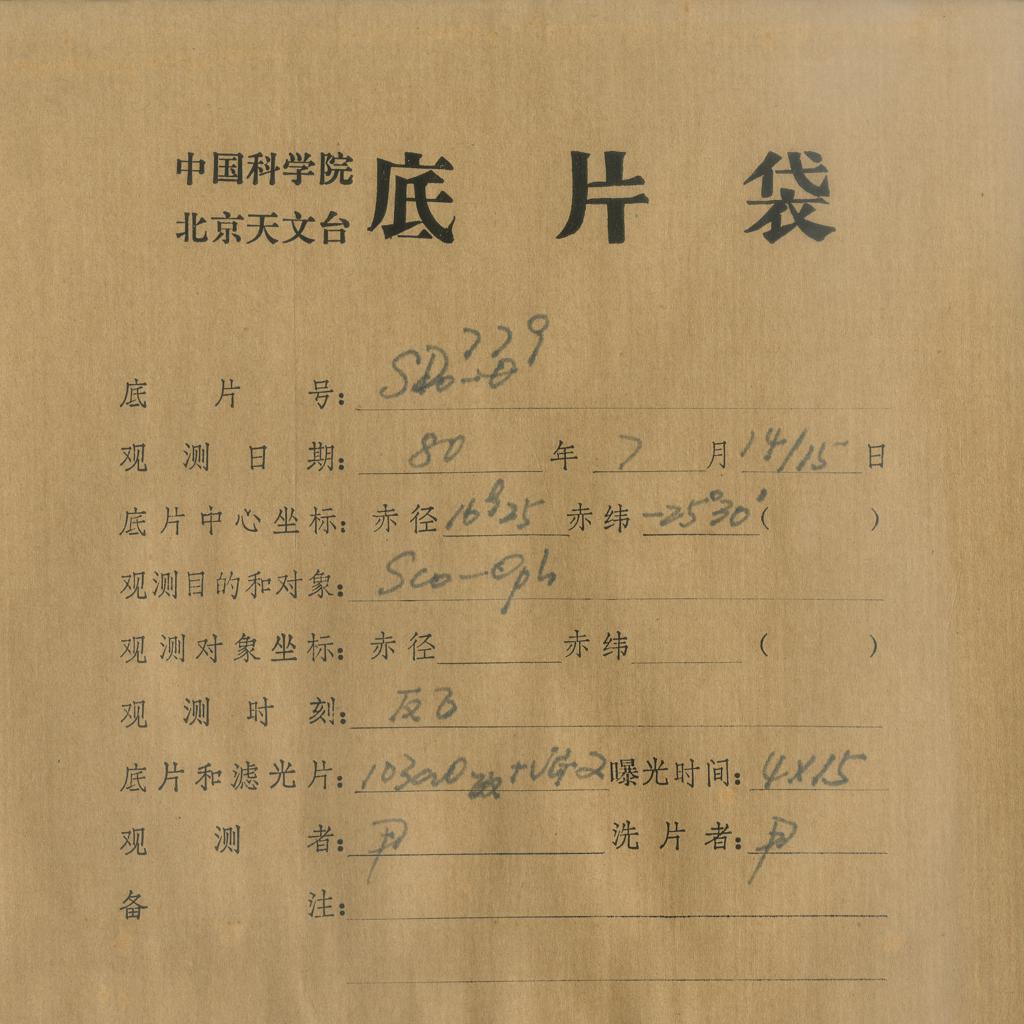 中国科学院
北京天文台 底片袋
底片号: 779
观测日期: 80年7月14/15日
底片中心坐标: 赤径16h25 赤纬-25°30′( )
观测目的和对象: Sco-Oph
观测对象坐标: 赤径 赤纬 ( )
观测时刻:
底片和滤光片: 103aO + 曝光时间: 4×15
观测者: 尹 洗片者: 尹
备注: